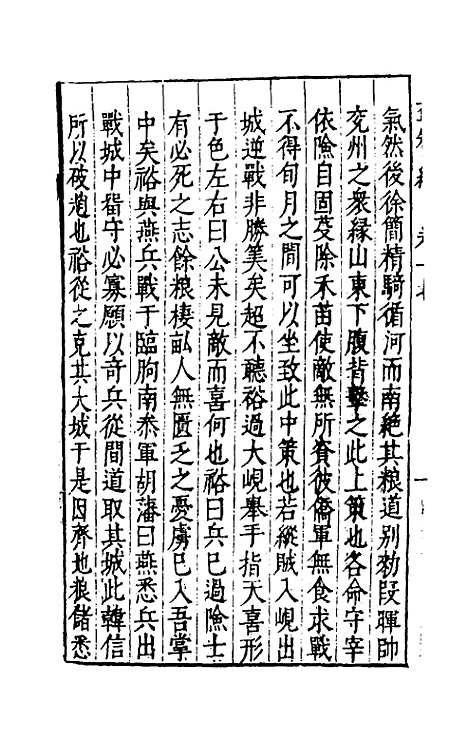 氣然後徐簡精騎循河而南絶其粮道别勑段暉帥
兖州之衆緣山東下腹背擊之此上策也各命守宰
依險自固芟除禾苗使敵無所資彼僑軍無食求戰
不得旬月之間可以坐致此中策也若縱賊入峴出
城逆戰非勝筭矣超不聽裕過大峴舉手指天喜形
于色左右曰公未見敵而喜何也裕曰兵已過險士
有必死之志餘粮棲畝人無匱乏之憂虜已入吾掌
中矣裕與燕兵戰于臨朐南叅軍胡藩曰燕悉兵出
戰城中留守必寡願以奇兵從間道取其城此韓信
所以破趙也裕從之克其大城于是因齊地粮儲悉